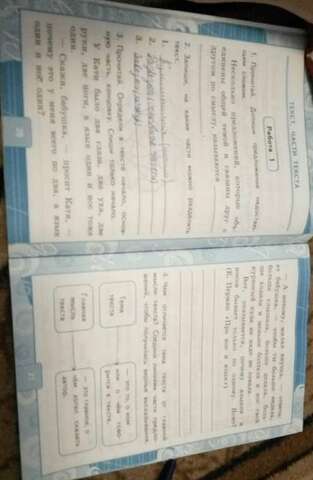 ТЕКСТ. ЧАСТИ ТЕКСТА
Работа 1
1. Прочитай. Допиши предложение недостаю-
щим словом.
Несколько предложений, которые объ-
единены общей темой и связаны друг с
другом по смыслу, называются
2. Запиши, на какие части можно разделить
текст.
1.
2.
3.
3. Прочитай. Определи в тексте начало, основ-
ную часть, концовку. Спиши только начало.
У Кати было два глаза, два уха, две
руки, две ноги, а язык один и нос тоже
один.
— Скажи, бабушка, — просит Катя, —
почему это у меня всего по два, а язык
один и нос один?
— А потому, милая внучка, — отвеча-
ет бабушка, — чтобы ты больше видела,
больше слышала, больше делала, боль-
ше ходила и меньше болтала и нос свой
курносый куда не надо не совала.
Вот, оказывается, почему языков и
носов бывает только по одному. Ясно?
(Е. Пермяк «Про нос и язык»)
4. Чем отличается тема текста от главной
мысли текста? Соедини линиями части предло-
жений, чтобы получились верные высказывания.
Тема
текста
— это то, о ком
или о чём гово-
рится в тексте.
Главная
мысль
текста
— это главное, о
чём хотел сказать
автор.